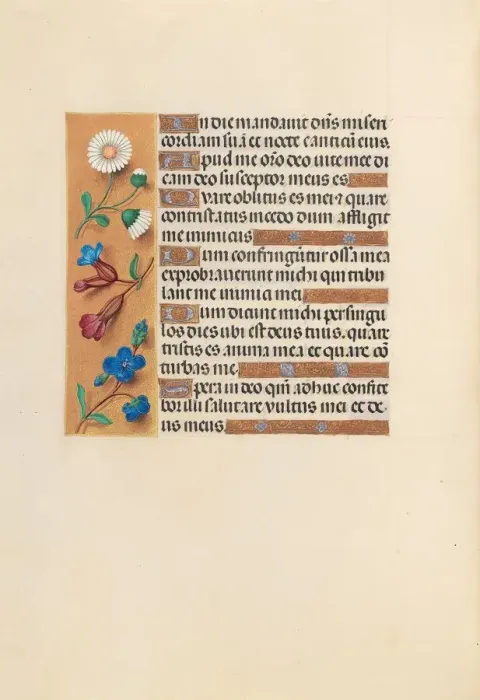 In die mandavit dn̄s miseri
cordiam suā et nocte canticū eius.
Apud me orō deo vite mee di
cam deo susceptor meus es
Quare oblitus es mei ⁊ quare
contristatus incedo dum affligit
me inimicus
Dum confringūtur ossa mea
exprobraverunt michi qui tribu
lant me inimici mei
Dum dicunt michi per singu
los dies ubi est deus tuus. quare
tristis es anima mea et quare cō
turbas me.
Spera in deo qm̄ adhuc confite
bor illi salutare vultus mei et de
us meus.